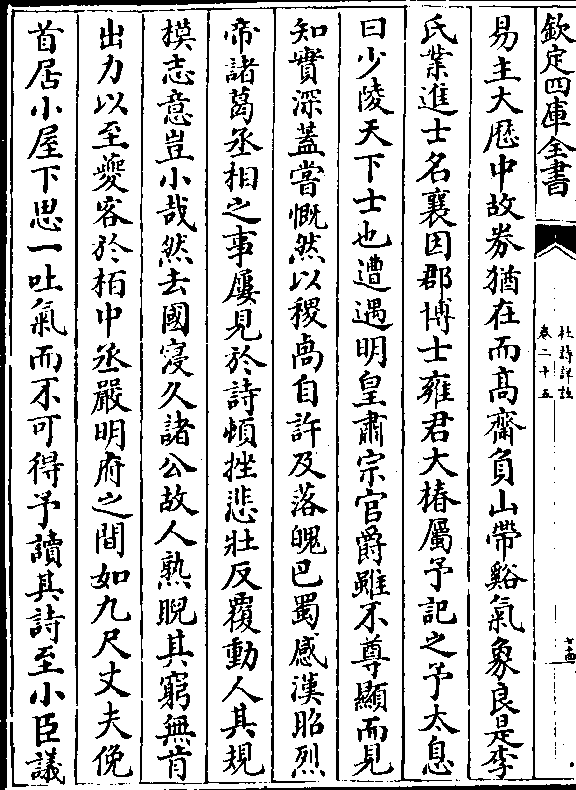 欽定四庫全書
杜詩詳註
卷二十五
易主大厯中故劵猶在而髙齋負山帶谿氣象良是李
氏業進士名襄因郡博士雍君大椿屬予記之予太息
曰少陵天下士也遭遇明皇肅宗官爵雖不尊顯而見
知實深葢嘗慨然以稷卨自許及落魄巴蜀感漢昭烈
帝諸葛丞相之事屢見於詩頓挫悲壯反覆動人其規
摸志意豈小哉然去國寖久諸公故人熟睨其窮無肯
出力以至䕫客於柏中丞嚴明府之間如九尺丈夫俛
首居小屋下思一吐氣而不可得予讀其詩至小臣議